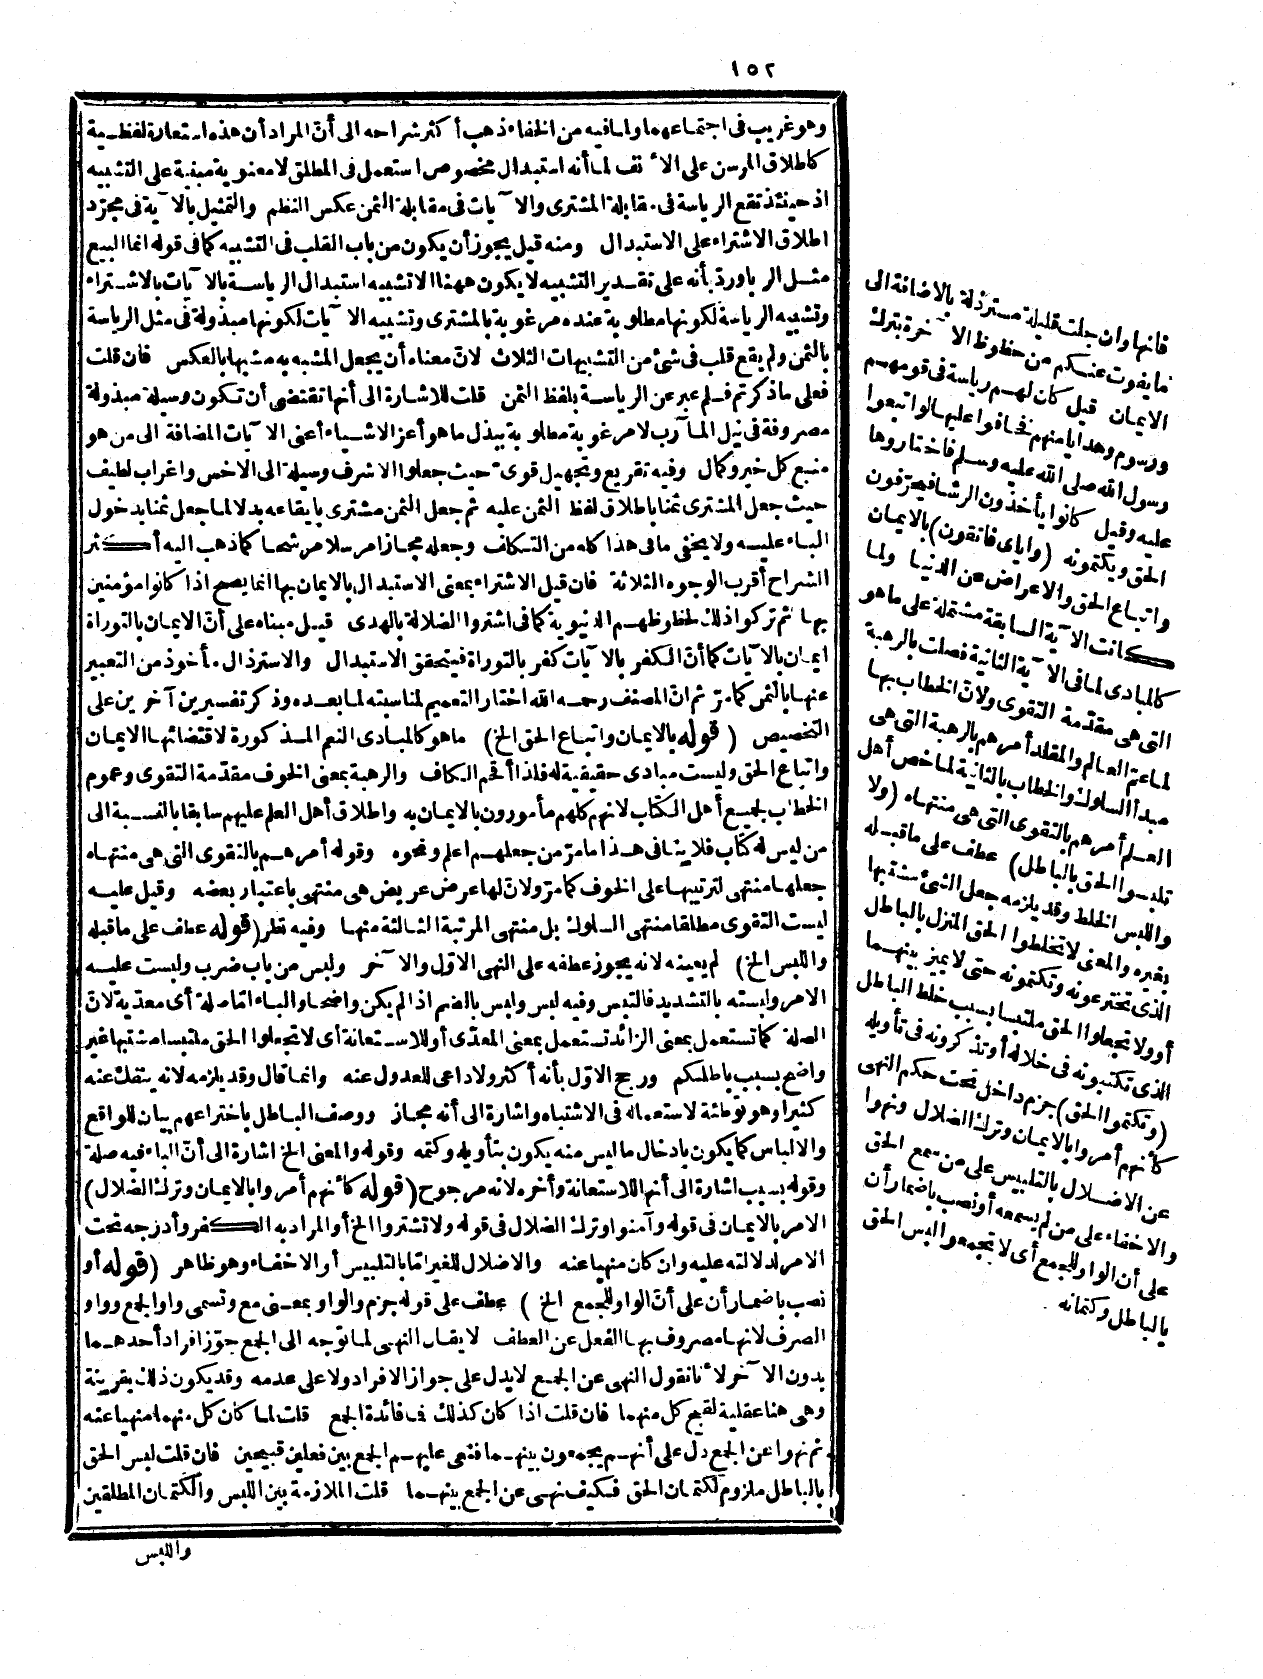 ١٥٢
وهو غريب فى اجتماعهما ولما فيه من الخفاء ذهب أكثر شراحه الى أنّ المراد أن هذه استعارة لفظية
كاطلاق المرسن على الانف لما أنه استبدال مخصوص استعمل فى المطلق لا معنوية مبنية على التشبيه
اذ حينئذ تقع الرياسة فى مقابلة المشترى والآيات فى مقابلة الثمن عكس النظم والتمثيل بالآية فى مجرّد
اطلاق الاشتراء على الاستبدال ومنه قيل يجوز أن يكون من باب القلب فى التشبيه كما فى قوله انما البيع
مثل الربا وردّ بأنه على تقدير التشبيه لا يكون ههنا الا تشبيه استبدال الرياسة بالآيات بالاشتراء
وتشبيه الرياسة لكونها مطلوبة عنده مرغوبة بالمشترى وتشبيه الآيات لكونها مبذولة فى مثل الرياسة
بالثمن ولم يقع قلب فى شئ من التشبيهات الثلاث لانّ معناه أن يجعل المشبه به مشبها بالعكس فان قلت
فعلى ما ذكرتم فلم عبر عن الرياسة بلفظ الثمن قلت للاشارة الى أنها تقتضى أن تكون وسيلة مبذولة
مصروفة فى نيل المآرب لامر غوبة مطلوبة ببذل ما هو أعز الاشياء أعنى الآيات المضافة الى من هو
منبع كل خير وكمال وفيه تقريع وتجهيل قوىّ حيث جعلوا الاشرف وسيلة الى الاخس واغراب لطيف
حيث جعل المشترى ثمنا باطلاق لفظ الثمن عليه ثم جعل الثمن مشترى بايقاعه بدلا لما جعل ثمنا بدخول
الباء عليه ولا يخفى ما فى هذا كله من التكلف وجعله مجازا مرسلا مرشحا كما ذهب اليه أكثر
الشراح أقرب الوجوه الثلاثة فان قيل الاشتراء بمعنى الاستبدال بالايمان بها انما يصح اذا كانوا مؤمنين
بها ثم تركوا ذلك لحظوظهم الدنيوية كما فى اشتروا الضلالة بالهدى قيل مبناه على أنّ الايمان بالتوراة
ايمان بالآيات كما أنّ الكفر بالآيات كفر بالتوراة فيتحقق الاستبدال والاسترذال مأخوذ من التعبير
عنها بالثمن كما مرّ ثم انّ المصنف رحمه الله اختار التعميم لمناسبته لما بعده وذكر تفسيرين آخرين على
التخصيص (قوله بالايمان واتباع الحق الخ) ما هو كالمبادى النعم المذكورة لاقتضائها الايمان
واتباع الحق وليست مبادى حقيقية له فلذا أقحم الكاف والرهبة بمعنى الخوف مقدّمة التقوى وعموم
الخطاب لجميع أهل الكتاب لانهم كلهم مأمورون بالايمان به واطلاق أهل العلم عليهم سابقا بالنسبة الى
من ليس له كتاب فلا ينافى هذا ما مرّ من جعلهم اعلم ونحوه وقوله أمرهم بالتقوى التى هى منتهاه
جعلها منتهى لترتيبها على الخوف كما مرّ ولانّ لها عرض عريض هى منتهى باعتبار بعضه وقيل عليه
ليست التقوى مطلقا منتهى السلوك بل منتهى المرتبة الثالثة منها وفيه نظر (قوله عطف على ما قبله
واللبس الخ) لم يعينه لانه يجوز عطفه على النهى الاوّل والآخر ولبس من باب ضرب ولبست عليه
الامر ولبسته بالتشديد فالتبس وفيه لبس ولبس بالضم اذا لم يكن واضحا والباء اما صلة أى معدّية لانّ
الصلة كما تستعمل بمعنى الزائد تستعمل بمعنى المعدّى أو للاستعانة أى لا تجعلوا الحق ملتبسا مشتبها غير
واضح بسبب باطلكم ورجح الاوّل بأنه أكثر ولا داعى للعدول عنه وانما قال وقد يلزمه لانه ينفك عنه
كثيرا وهو توطئة لاستعماله فى الاشتباه واشارة الى أنه مجاز ووصف الباطل باختراعهم بيان للواقع
والالباس كما يكون بادخال ما ليس منه يكون بتأويله وكتمه وقوله والمعنى الخ اشارة الى أنّ الباء فيه صلة
وقوله بسبب اشارة الى أنها للاستعانة وأخره لانه مرجوح (قوله كأنهم أمروا بالايمان وترك الضلال)
الامر بالايمان فى قوله وآمنوا وترك الضلال فى قوله ولا تشتروا الخ أو المراد به الكفر وأدرجه تحت
الامر لدلالته عليه وان كان منهيا عنه والاضلال للغير امّا بالتلبيس أو الاخفاء وهو ظاهر (قوله أو
نصب باضمار أن على أنّ الواو للجمع الخ) عطف على قوله جزم والواو بمعنى مع وتسمى واو الجمع وواو
الصرف لانها مصروف بها الفعل عن العطف لا يقال النهى لما توجه الى الجمع جوّز افراد أحدهما
بدون الآخر لانا نقول النهى عن الجمع لا يدل على جواز الافراد ولا على عدمه وقد يكون ذلك بقرينة
وهى هنا عقلية لقبح كل منهما فان قلت اذا كان كذلك فما فائدة الجمع قلت لما كان كل منهما منهيا عنه
ثم نهوا عن الجمع دل على أنهم يجمعون بينهما فنعى عليهم الجمع بين فعلين قبيحين فان قلت لبس الحق
بالباطل ملزوم لكتمان الحق فكيف نهى عن الجمع بينهما قلت الملازمة بين اللبس والكتمان المطلقين
واللبس
فانها وان جلت قليلة مسترذلة بالاضافة الى
ما يفوت عنكم من حظوظ الآخرة بترك
الايمان قيل كان لهم رياسة فى قومهم
ورسوم وهدايا منهم فخافوا عليها لو اتبعوا
رسول الله صلى الله عليه وسلم فاختاروها
عليه وقيل كانوا يأخذون الرشا فيحرّفون
الحق ويكتمونه (واياى فاتقون) بالايمان
واتباع الحق والاعراض عن الدنيا ولما
كانت الآية السابقة مشتملة على ما هو
كالمبادى لما فى الآية الثانية فصلت بالرهبة
التى هى مقدّمة التقوى ولانّ الخطاب بها
لما عمّ العالم والمقلد أمرهم بالرهبة التى هى
مبدأ السلوك والخطاب بالثانية لما خص أهل
العلم أمرهم بالتقوى التى هى منتهاه (ولا
تلبسوا الحق بالباطل) عطف على ما قبله
واللبس الخلط وقد يلزمه جعل الشئ مشتبها
بغيره والمعنى لا تخلطوا الحق المنزل بالباطل
الذى تخترعونه وتكتمونه حتى لا يميز بينهما
أو ولا تجعلوا الحق ملتبسا بسبب خلط الباطل
الذى تكتبونه فى خلاله أو تذكرونه فى تأويله
(وتكتموا الحق) جزم داخل تحت حكم النهى
كأنهم أمروا بالايمان وترك الضلال ونهوا
عن الاضلال بالتلبيس على من سمع الحق
والاخفاء على من لم يسمعه أو نصب باضمار أن
على أن الواو للجمع أى لا تجمعوا لبس الحق
بالباطل وكتمانه